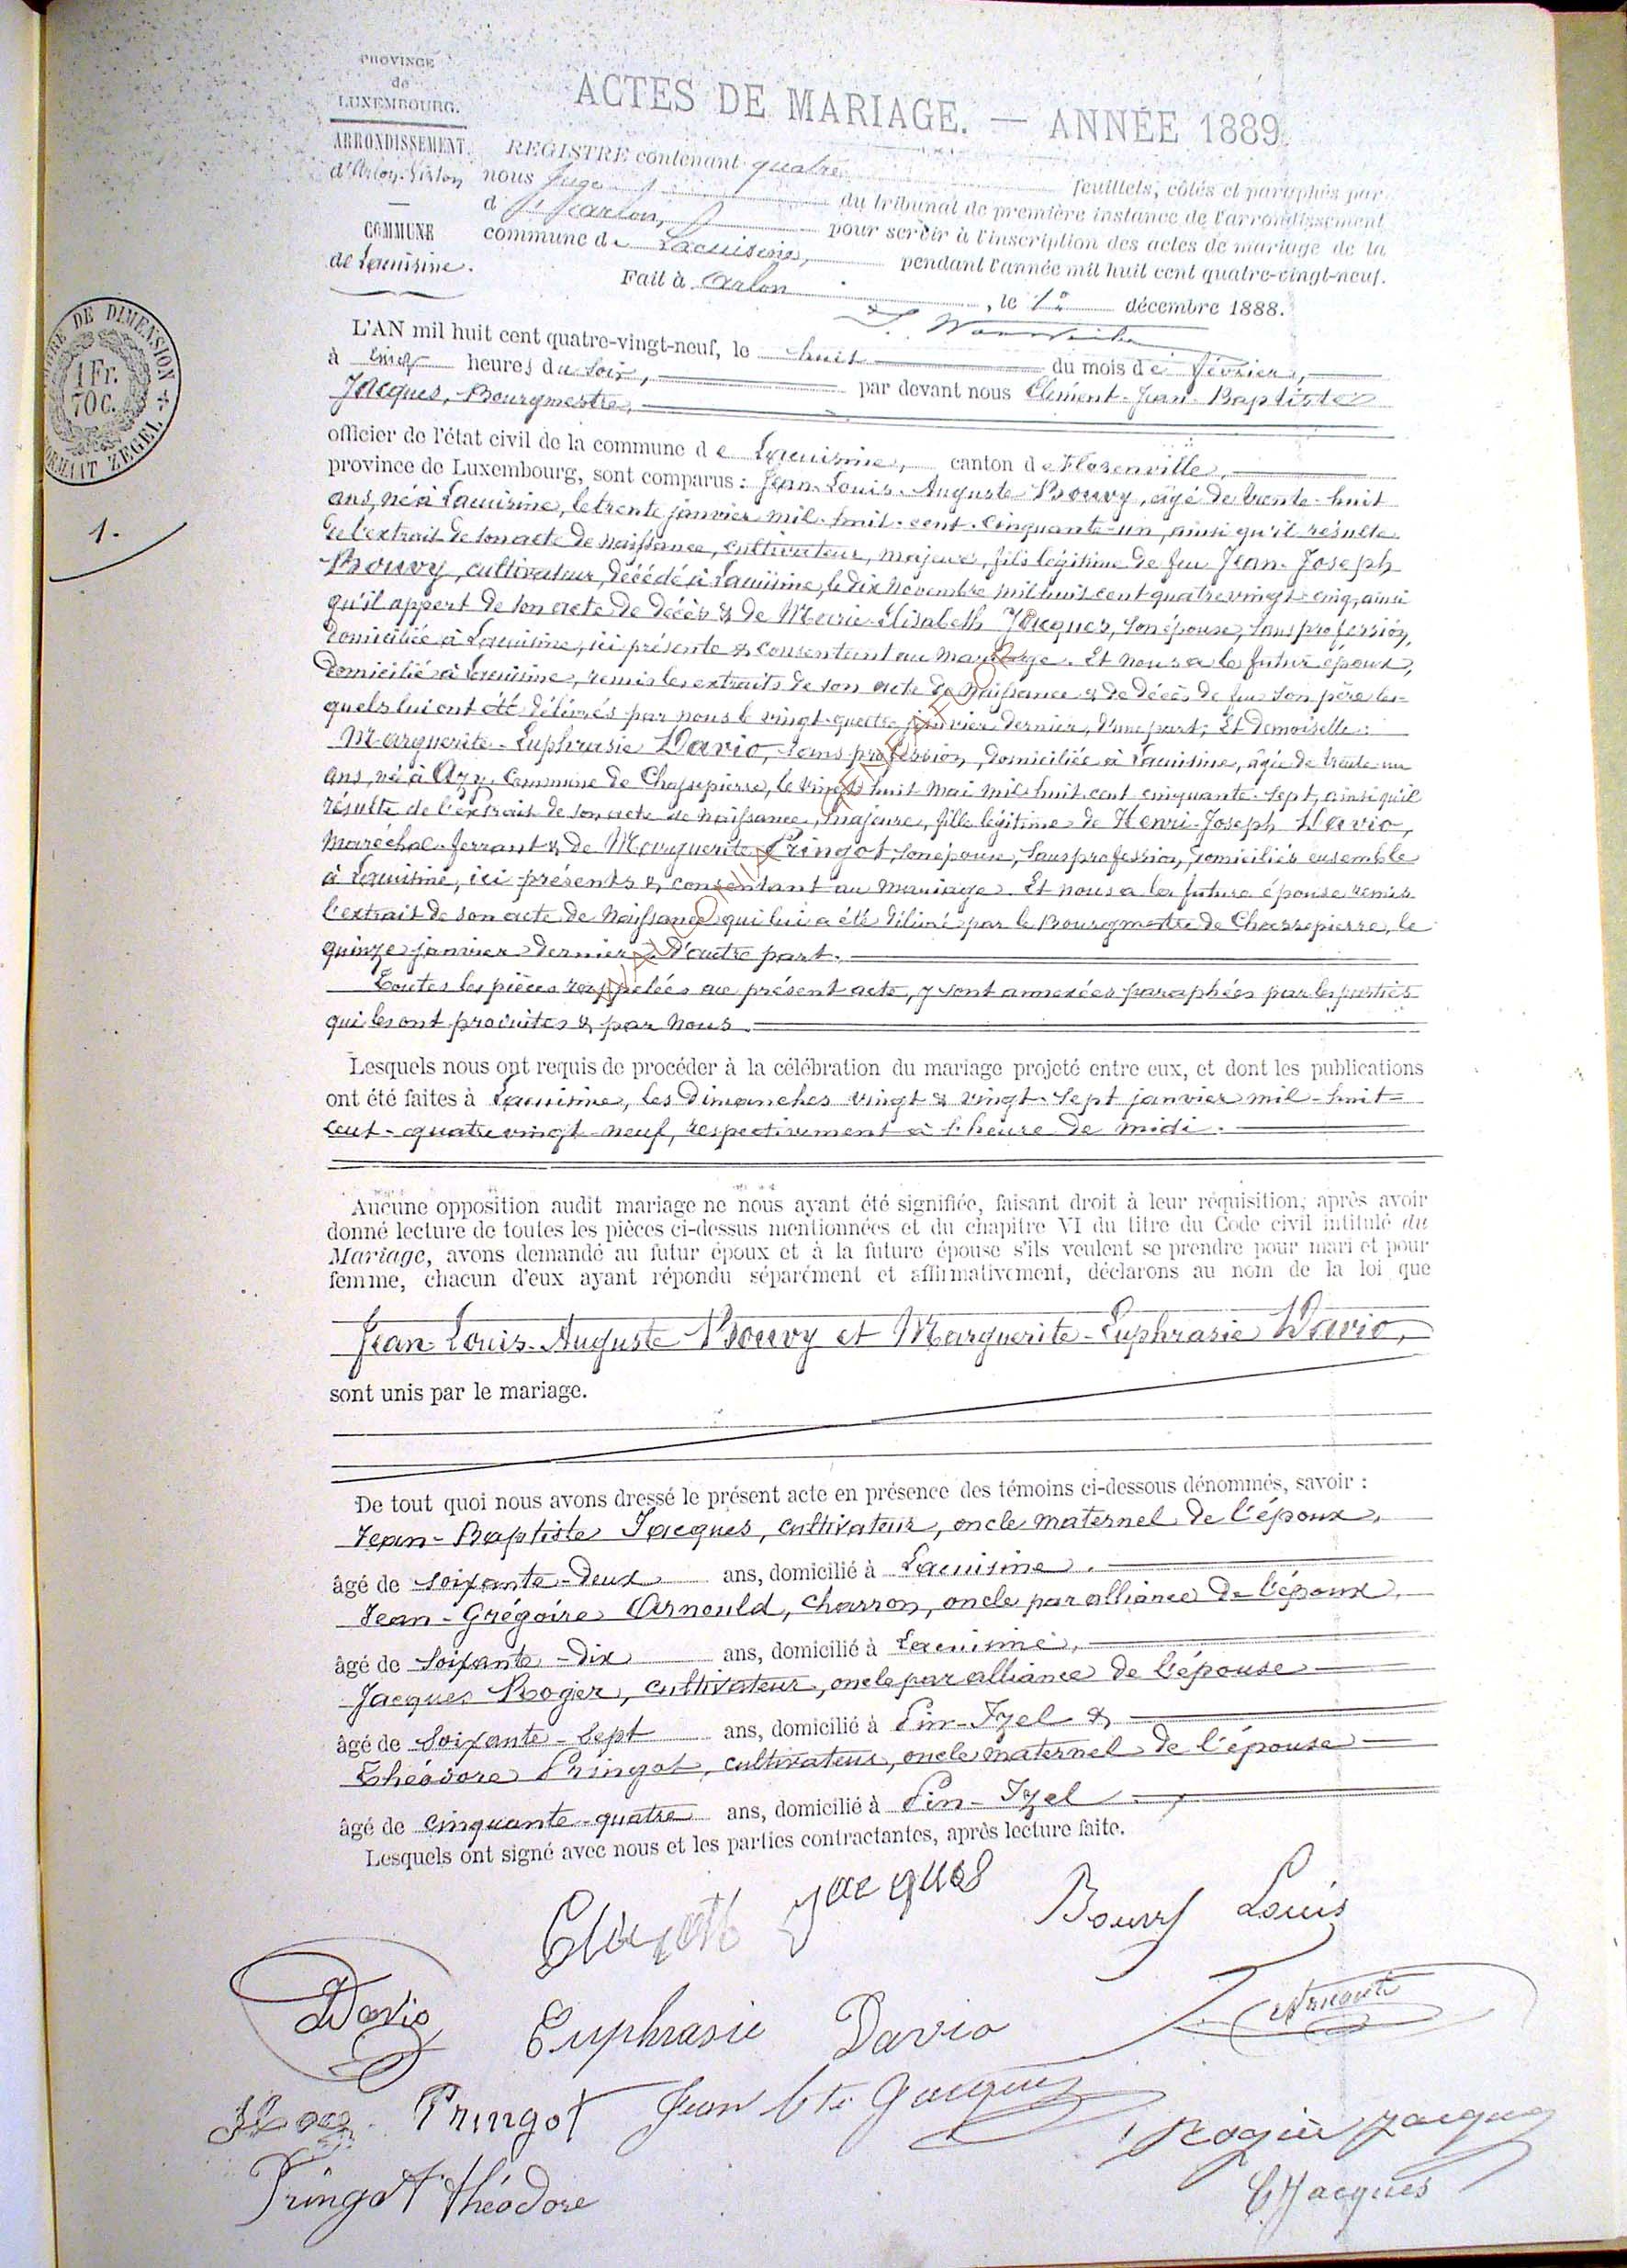 PROVINCE
de
LUXEMBOURG.
ARRONDISSEMENT
d'Arlon-Virton
COMMUNE
de Lacuisine.
ACTES DE MARIAGE. — ANNÉE 1889.
REGISTRE contenant quatre feuillets, côtés et paraphés par
nous Juge du tribunal de première instance de l'arrondissement
d'Arlon, pour servir à l'inscription des actes de mariage de la
commune de Lacuisine, pendant l'année mil huit cent quatre-vingt-neuf.
Fait à Arlon, le 1er décembre 1888.
TIMBRE DE DIMENSION
1 Fr.
70 C.
FORMAAT ZEGEL
1.
L'AN mil huit cent quatre-vingt-neuf, le huit du mois de février,
à cinq heures du soir, par devant nous Clément-Jean-Baptiste
Jacques, Bourgmestre,
officier de l'état civil de la commune de Lacuisine, canton de Florenville,
province de Luxembourg, sont comparus: Jean-Louis-Auguste Bouvy, âgé de trente-huit
ans, né à Lacuisine, le trente janvier mil-huit-cent-cinquante-un, ainsi qu'il résulte
de l'extrait de son acte de naissance, cultivateur, majeur, fils légitime de feu Jean-Joseph
Bouvy, cultivateur, décédé à Lacuisine, le dix novembre mil huit cent quatre vingt-cinq, ainsi
qu'il appert de son acte de décès & de Marie-Elisabeth Jacques, son épouse, sans profession,
domiciliée à Lacuisine, ici présente & consentant au mariage. Et nous a le futur époux,
domicilié à Lacuisine, remis les extraits de son acte de naissance & de décès de feu son père les-
quels lui ont été délivrés par nous le vingt-quatre janvier dernier, d'une part; Et Demoiselle:
Marguerite-Euphrasie Davio, sans profession, domiciliée à Lacuisine, âgée de trente-un
ans, né à Azy, commune de Chassepierre, le vingt huit mai mil-huit-cent cinquante-sept, ainsi qu'il
résulte de l'extrait de son acte de naissance, majeure, fille légitime de Henri-Joseph Davio,
maréchal-ferrant & de Marguerite Pringot, son épouse, sans profession, domiciliés ensemble
à Lacuisine, ici présents & consentant au mariage. Et nous a la future épouse remis
l'extrait de son acte de naissance qui lui a été délivré par le Bourgmestre de Chassepierre, le
quinze janvier dernier, d'autre part.
Toutes les pièces rappelées au présent acte, y sont annexées paraphées par les parties
qui les ont produites & par nous.
WALLONIA GENEAFLOR
Lesquels nous ont requis de procéder à la célébration du mariage projeté entre eux, et dont les publications
ont été faites à Lacuisine, les dimanches vingt & vingt-sept janvier mil-huit-
cent-quatre vingt-neuf, respectivement à l'heure de midi.
Aucune opposition audit mariage ne nous ayant été signifiée, faisant droit à leur réquisition, après avoir
donné lecture de toutes les pièces ci-dessus mentionnées et du chapitre VI du titre du Code civil intitulé du
Mariage, avons demandé au futur époux et à la future épouse s'ils veulent se prendre pour mari et pour
femme, chacun d'eux ayant répondu séparément et affirmativement, déclarons au nom de la loi que
Jean-Louis-Auguste Bouvy et Marguerite-Euphrasie Davio,
sont unis par le mariage.
De tout quoi nous avons dressé le présent acte en présence des témoins ci-dessous dénommés, savoir :
Jean-Baptiste Jacques, cultivateur, oncle maternel de l'époux,
âgé de soixante-deux ans, domicilié à Lacuisine.
Jean-Grégoire Arnould, charron, oncle par alliance de l'époux,
âgé de soixante-dix ans, domicilié à Lacuisine,
Jacques Rogier, cultivateur, oncle par alliance de l'épouse
âgé de soixante-sept ans, domicilié à Pin-Izel &
Théodore Pringot, cultivateur, oncle maternel de l'épouse
âgé de cinquante-quatre ans, domicilié à Pin-Izel
Lesquels ont signé avec nous et les parties contractantes, après lecture faite.
Jacques Bouvy Louis
Davio Euphrasie Davio
Pringot Jean Bte Jacques Rogier Jacques
Pringot théodore C J Jacques